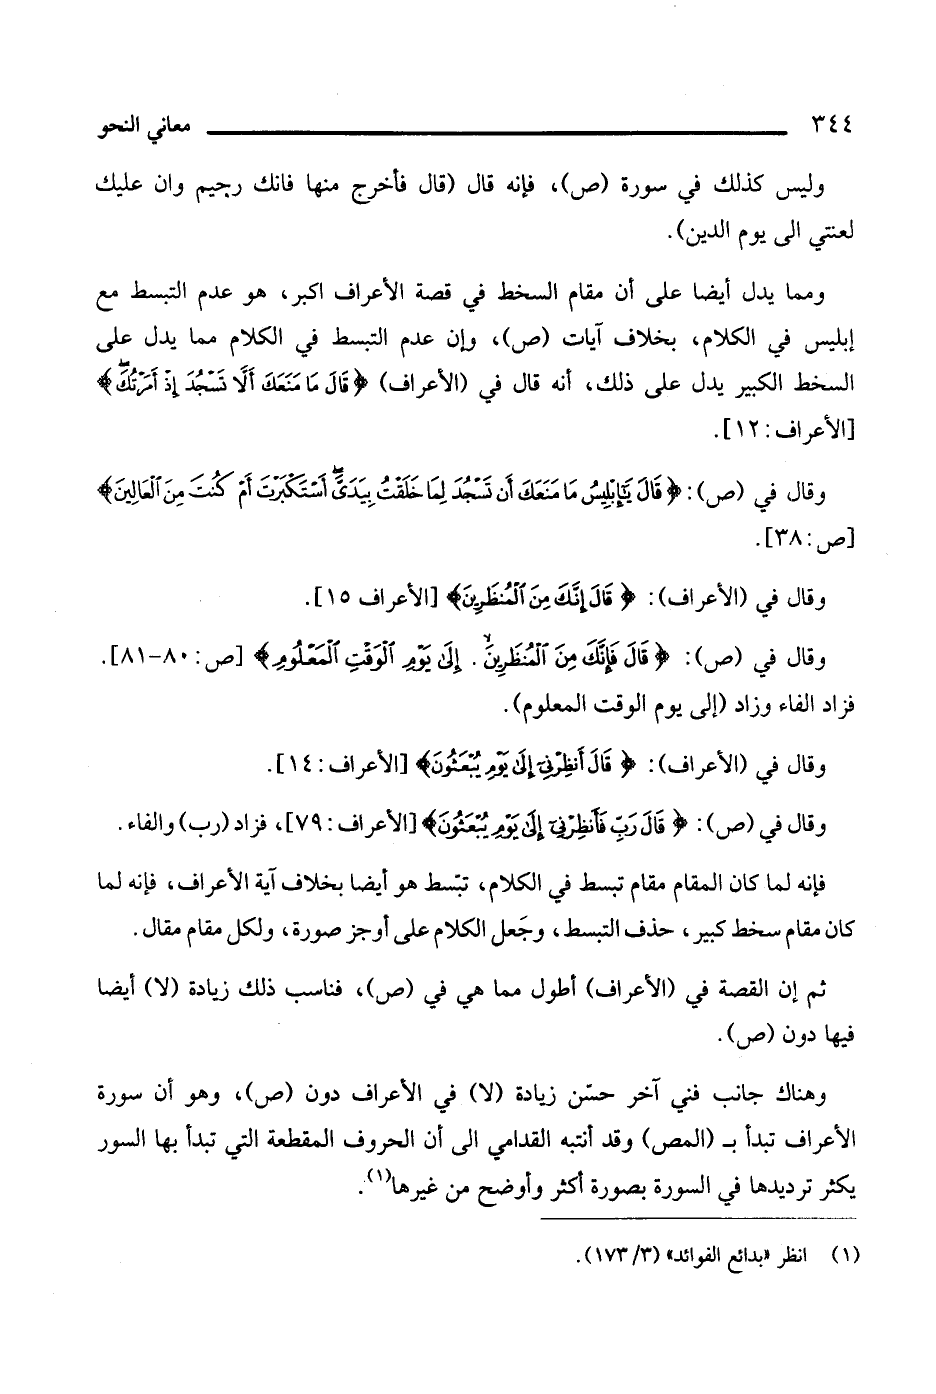 ٣٤٤ معاني النحو
وليس كذلك في سورة (ص)، فإنه قال (قال فأخرج منها فانك رجيم وان عليك
لعنتي الى يوم الدين).
ومما يدل أيضا على أن مقام السخط في قصة الأعراف اكبر، هو عدم التبسط مع
إبليس في الكلام، بخلاف آيات (ص)، وإن عدم التبسط في الكلام مما يدل على
السخط الكبير يدل على ذلك، أنه قال في (الأعراف) ﴿قَالَ مَا مَنَعَكَ أَلَّا تَسْجُدَ إِذْ أَمَرْتُكَۖ﴾
[الأعراف: ١٢].
وقال في (ص): ﴿قَالَ يَٰٓإِبْلِيسُ مَا مَنَعَكَ أَن تَسْجُدَ لِمَا خَلَقْتُ بِيَدَىَّۖ أَسْتَكْبَرْتَ أَمْ كُنتَ مِنَ ٱلْعَالِينَ﴾
[ص: ٣٨].
وقال في (الأعراف): ﴿قَالَ إِنَّكَ مِنَ ٱلْمُنظَرِينَ﴾ [الأعراف ١٥].
وقال في (ص): ﴿قَالَ فَإِنَّكَ مِنَ ٱلْمُنظَرِينَۙ. إِلَىٰ يَوْمِ ٱلْوَقْتِ ٱلْمَعْلُومِ﴾ [ص: ٨٠-٨١].
فزاد الفاء وزاد (إلى يوم الوقت المعلوم).
وقال في (الأعراف): ﴿قَالَ أَنظِرْنِىٓ إِلَىٰ يَوْمِ يُبْعَثُونَ﴾ [الأعراف: ١٤].
وقال في (ص): ﴿قَالَ رَبِّ فَأَنظِرْنِىٓ إِلَىٰ يَوْمِ يُبْعَثُونَ﴾ [الأعراف: ٧٩]، فزاد (رب) والفاء.
فإنه لما كان المقام مقام تبسط في الكلام، تبّسط هو أيضا بخلاف آية الأعراف، فإنه لما
كان مقام سخط كبير، حذف التبسط، وجَعل الكلام على أوجز صورة، ولكل مقام مقال.
ثم إن القصة في (الأعراف) أطول مما هي في (ص)، فناسب ذلك زيادة (لا) أيضا
فيها دون (ص).
وهناك جانب فني آخر حسّن زيادة (لا) في الأعراف دون (ص)، وهو أن سورة
الأعراف تبدأ بـ (المص) وقد أنتبه القدامي الى أن الحروف المقطعة التي تبدأ بها السور
يكثر ترديدها في السورة بصورة أكثر وأوضح من غيرها(١).
(١) انظر «بدائع الفوائد» (٣/ ١٧٣).